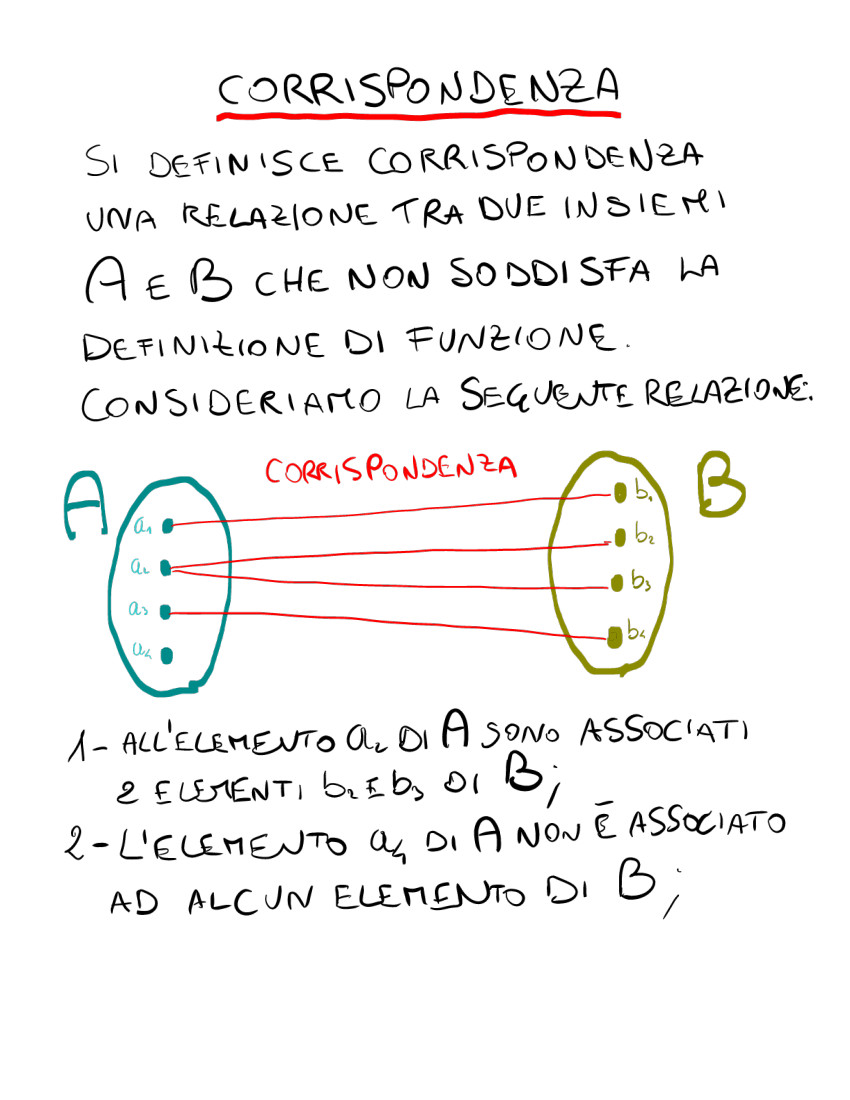 CORRISPONDENZA
SI DEFINISCE CORRISPONDENZA
UNA RELAZIONE TRA DUE INSIEMI
A E B CHE NON SODDISFA LA
DEFINIZIONE DI FUNZIONE.
CONSIDERIAMO LA SEGUENTE RELAZIONE:
CORRISPONDENZA
A
B
a₁
a₂
a₃
a₄
b₁
b₂
b₃
b₄
1- ALL'ELEMENTO a₂ DI A SONO ASSOCIATI
2 ELEMENTI b₂ E b₃ DI B;
2- L'ELEMENTO a₄ DI A NON È ASSOCIATO
AD ALCUN ELEMENTO DI B;